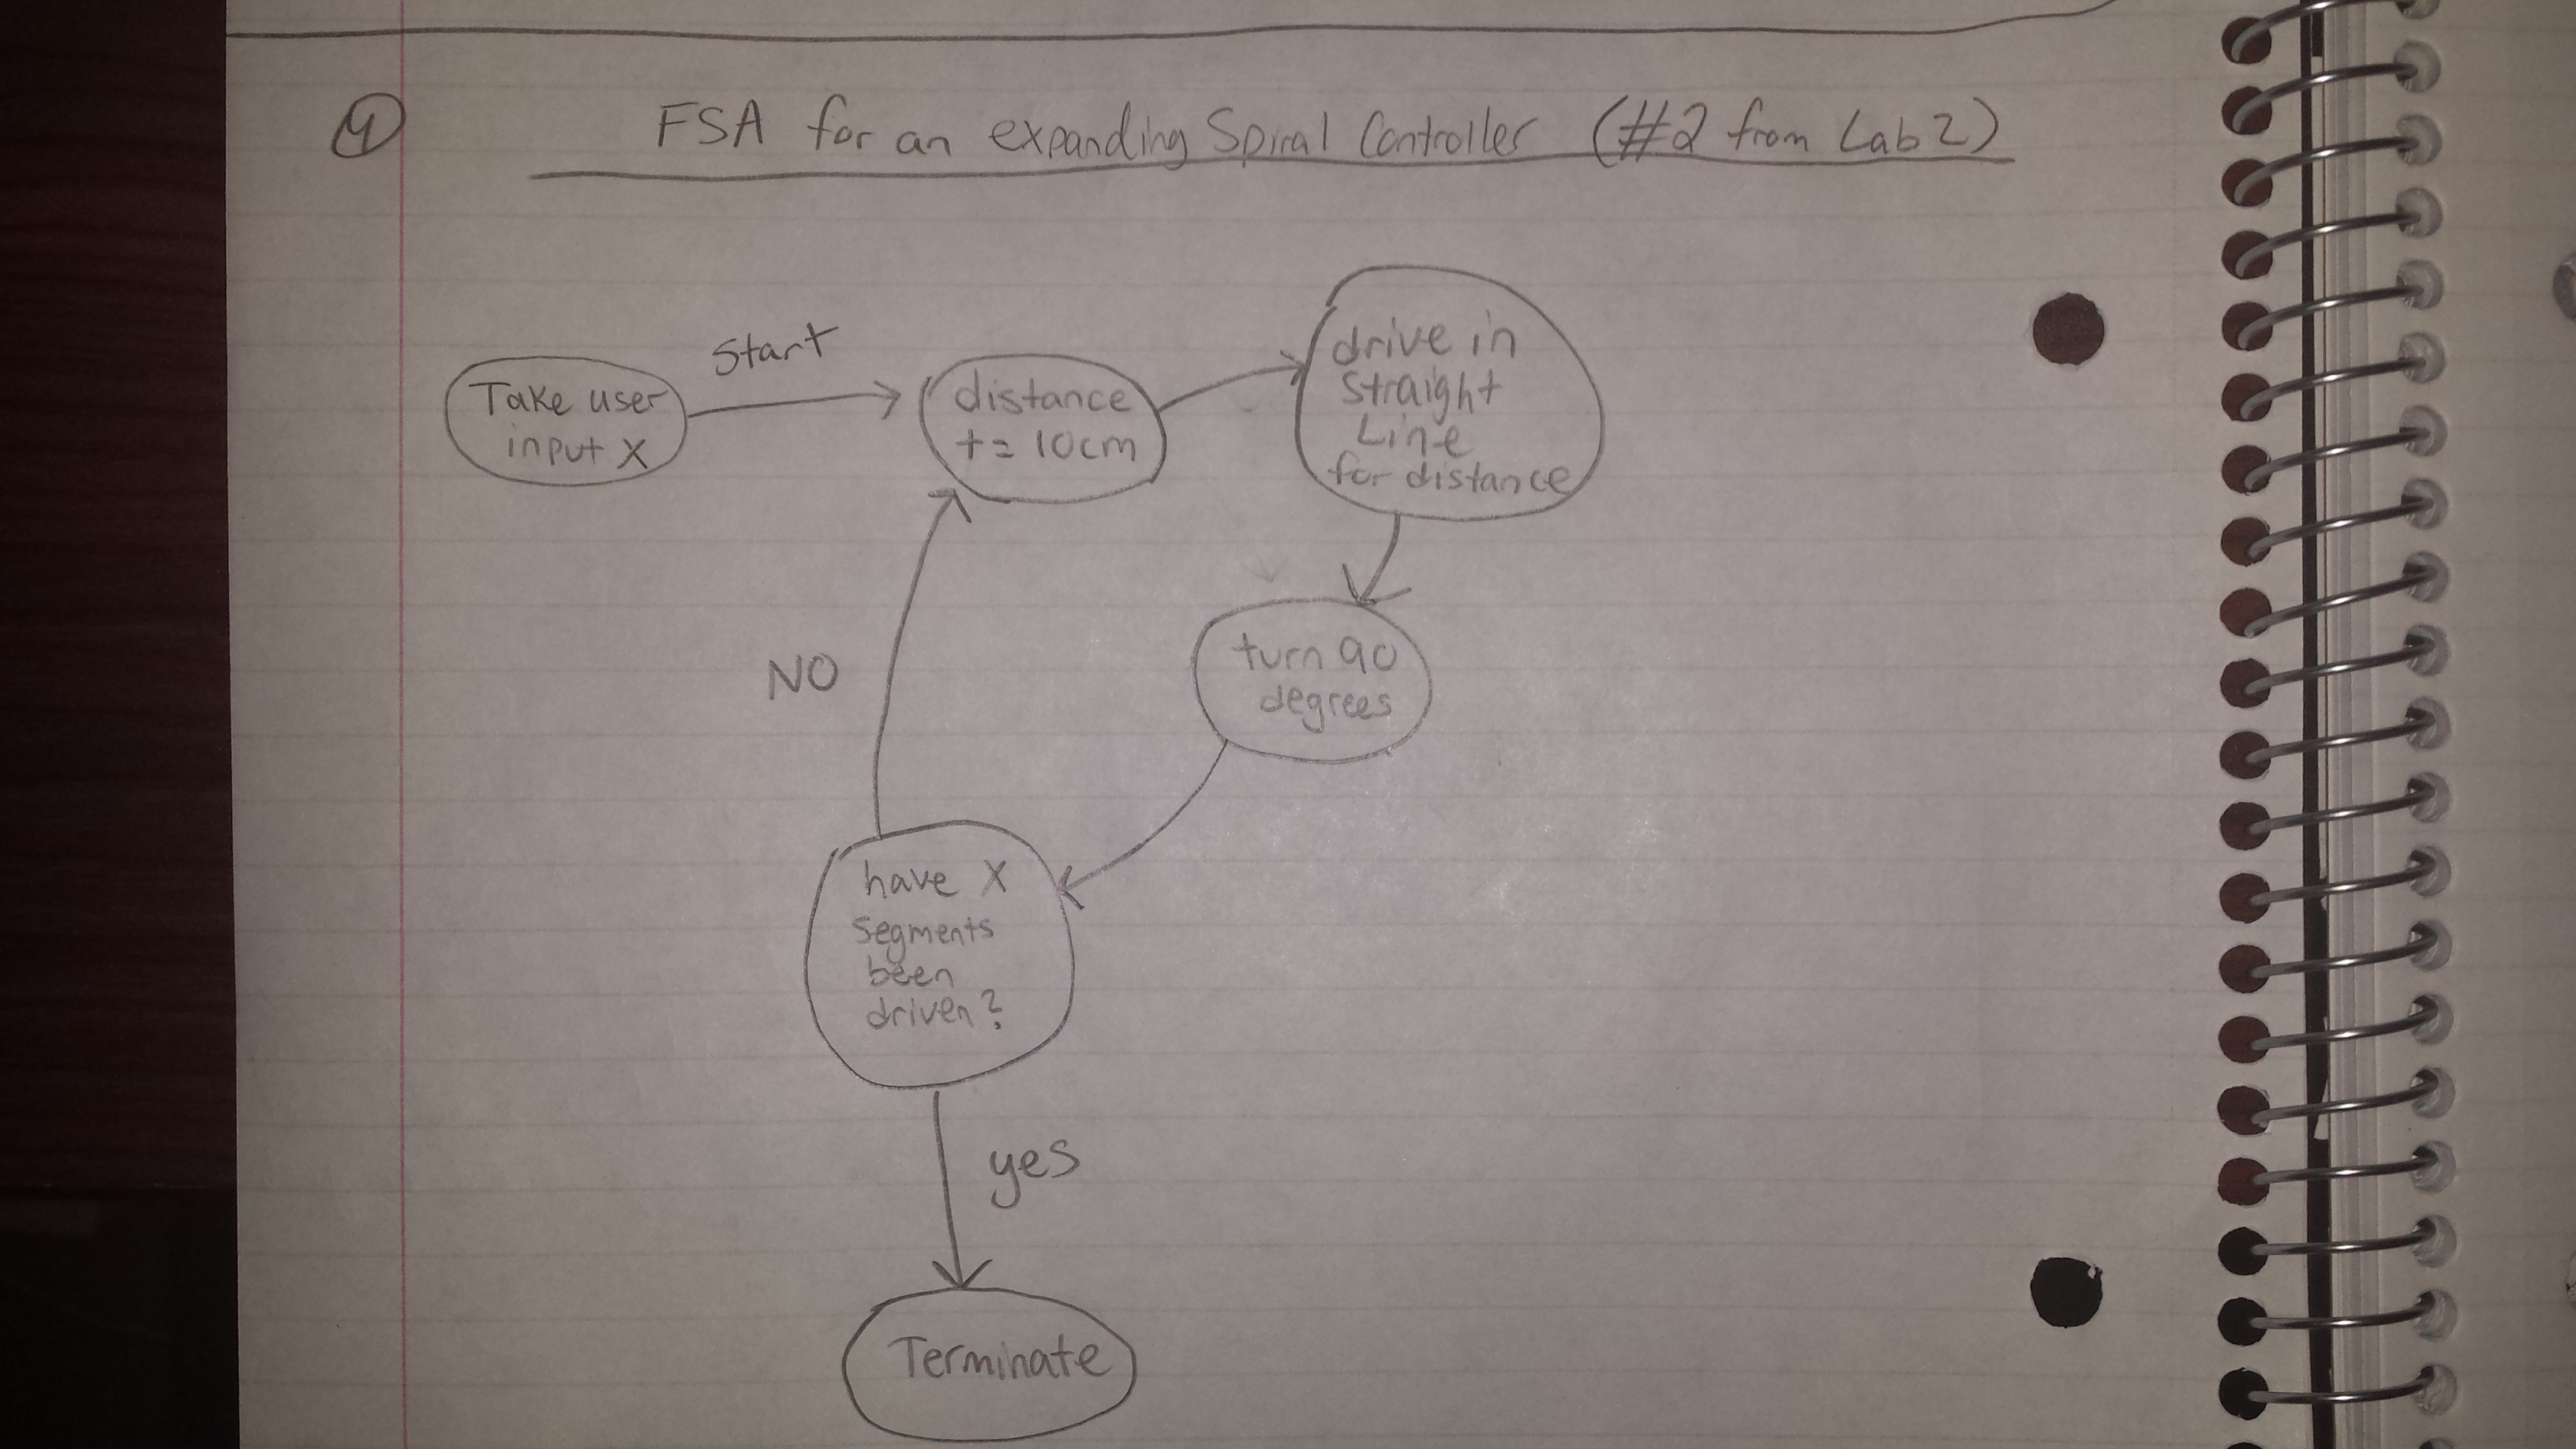 4
FSA for an expanding Spiral Controller (#2 from Lab 2)
Start
Take user
input X
distance
+= 10cm
drive in
Straight
Line
for distance
turn 90
degrees
NO
have X
segments
been
driven?
yes
Terminate